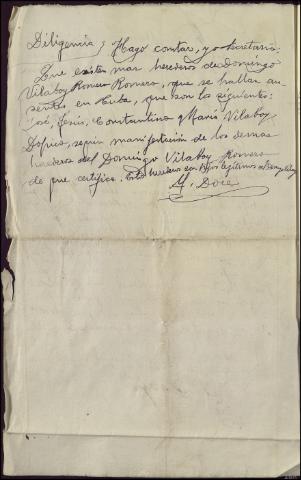 Diligencia; Hago contar, yo secretario:
Que existen mas herederos de Domingo
Vilaboy Romero, que se hallan au
sentes en Cuba, que son los siguientes:
José, Jesús, Constantino y María Vilaboy
según manifestación de los demas
herederos del Domingo Vilaboy Romero
de que certifico. Estos herederos son hijos legítimos
Doce